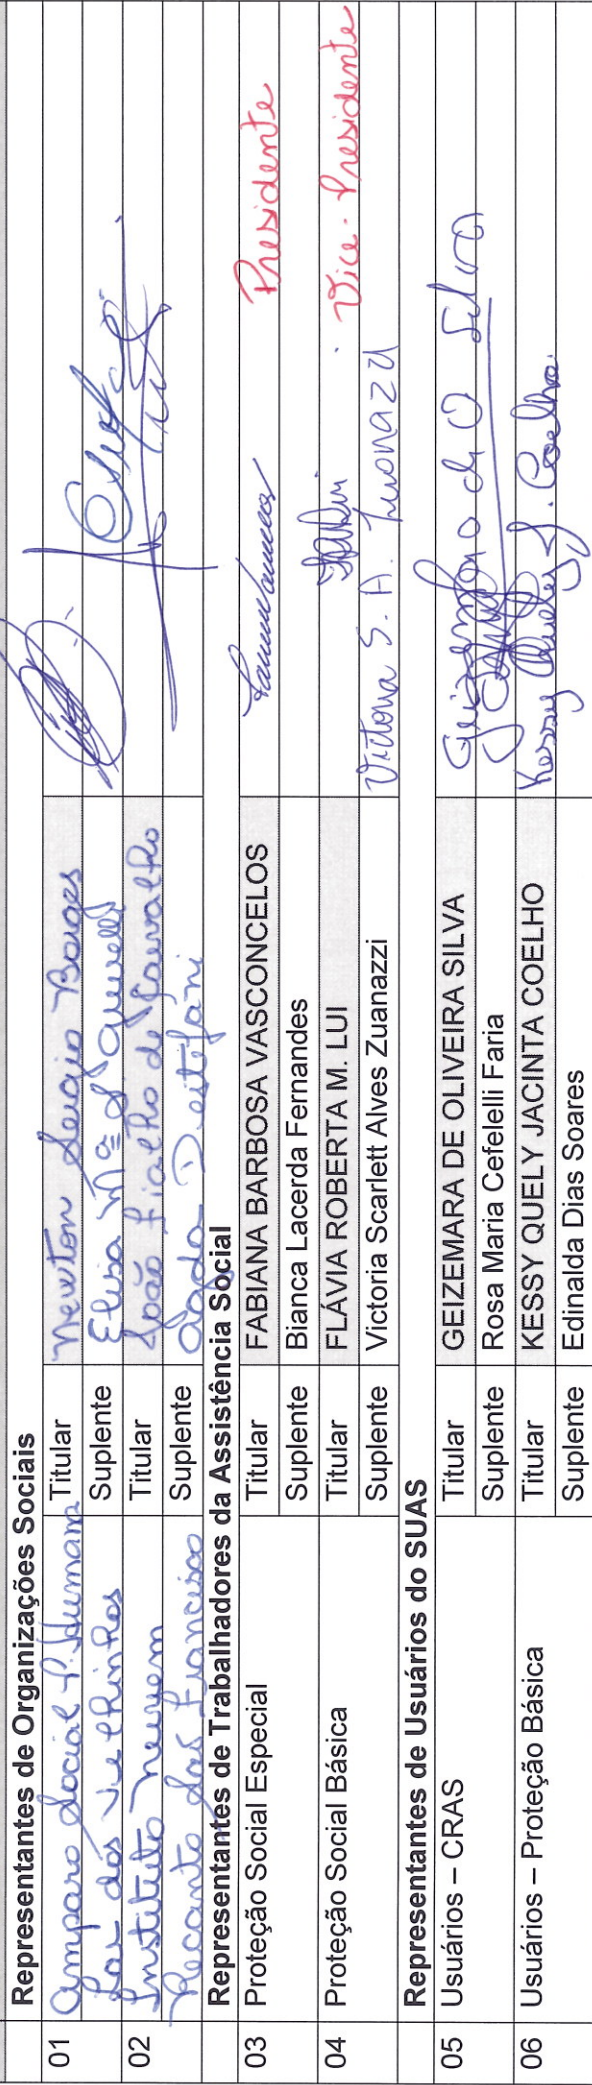 Representantes de Organizações Sociais
01 Amparo Social P. Humana Titular Newton Sergio Borges
Lar dos Velhinhos Suplente Elisa Mª
02 Instituto Titular João Fialho de Carvalho
Recanto São Francisco Suplente Destefani
Representantes de Trabalhadores da Assistência Social
03 Proteção Social Especial Titular FABIANA BARBOSA VASCONCELOS Presidente
Suplente Bianca Lacerda Fernandes
04 Proteção Social Básica Titular FLÁVIA ROBERTA M. LUI Vice-Presidente
Suplente Victoria Scarlett Alves Zuanazzi Victoria S. A. Zuanazzi
Representantes de Usuários do SUAS
05 Usuários – CRAS Titular GEIZEMARA DE OLIVEIRA SILVA Geizemara de O Silva
Suplente Rosa Maria Cefelelli Faria
06 Usuários – Proteção Básica Titular KESSY QUELY JACINTA COELHO Kessy Quely J. Coelho
Suplente Edinalda Dias Soares